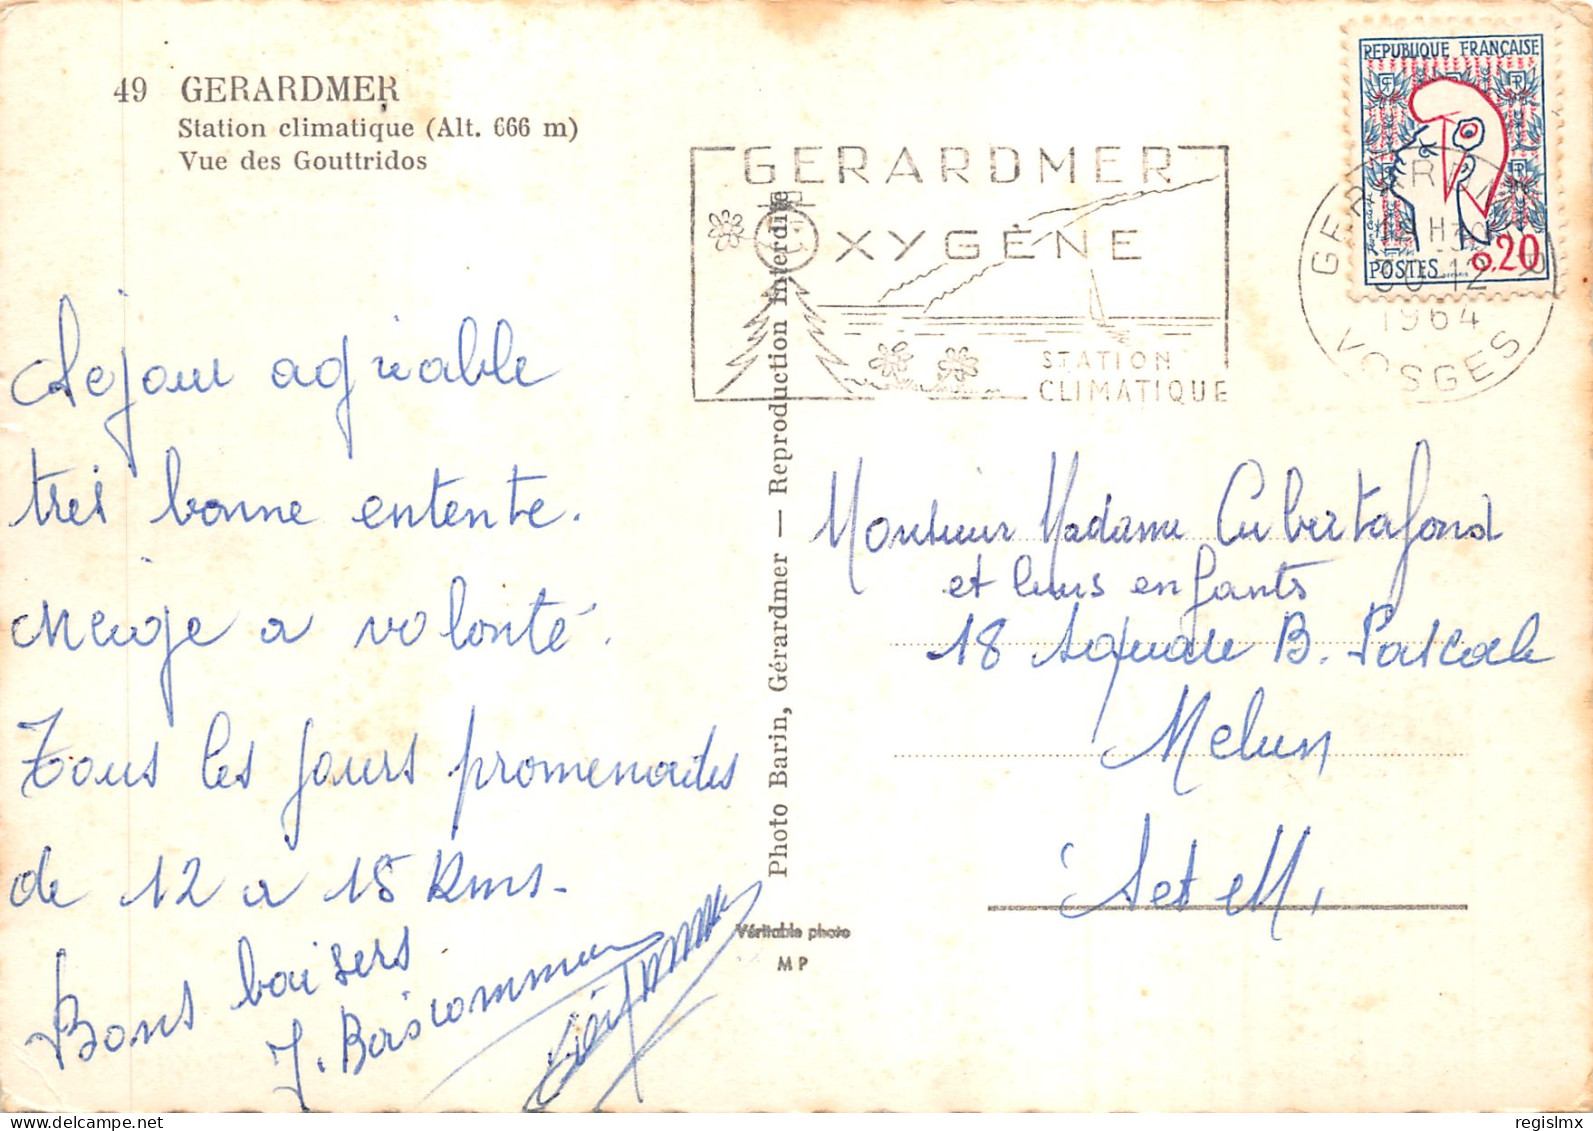 49 GERARDMER
Station climatique (Alt. 666 m)
Vue des Gouttridos
REPUBLIQUE FRANÇAISE
POSTES 0.20
GERARDMER
OXYGÈNE
STATION
CLIMATIQUE
GERARDMER
H30
30-12
1964
VOSGES
Sejour agréable
tres bonne entente.
Neige a volonté.
Tous les jours promenades
de 12 a 15 Kms.
Bons baisers
Photo Barin, Gérardmer — Reproduction interdite
Monsieur Madame Cubertafond
et leurs enfants
18 square B. Pascale
Melun
S et M,
Véritable photo
MP
delcampe.net
regislmx